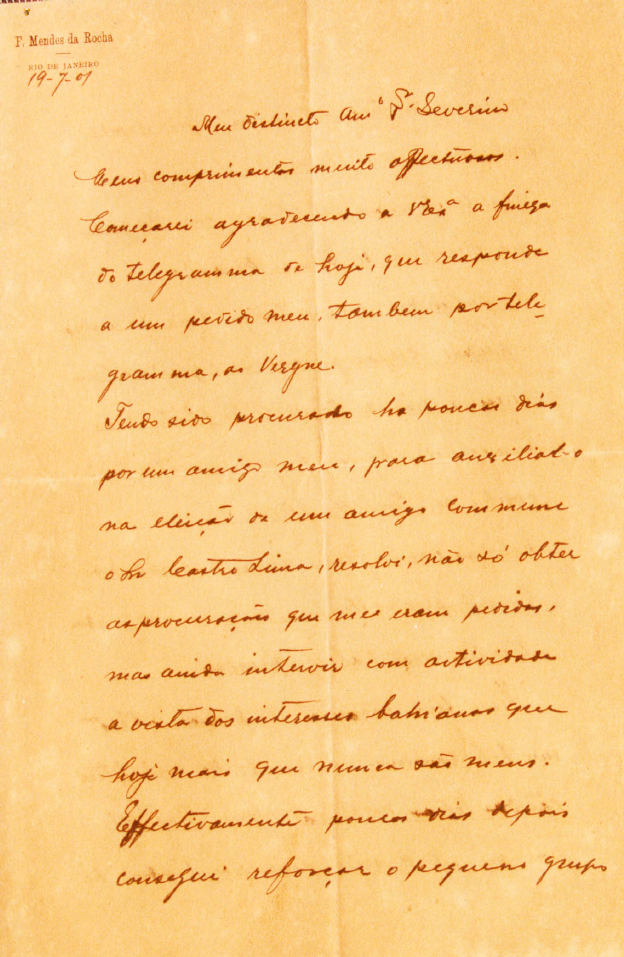 F. Mendes da Rocha
RIO DE JANEIRO
19-7-01
Meu distincto Amº Dr. Severino
Meus comprimentos muito affectuosos.
Começarei agradecendo a VExª a fineza
do telegramma de hoje, que responde
a um pedido meu, tambem por tele-
gramma, ao Vergne.
Tendo sido procurado ha poucos dias
por um amigo meu, para auxilial-o
na eleição de um amigo commum
o Dr Castro Lima, resolvi, não só obter
as procurações que me eram pedidas,
mas ainda intervir com actividade
a vista dos interesses bahianos que
hoje mais que nunca são meus.
Effectivamente poucos dias depois
consegui reforçar o pequeno grupo